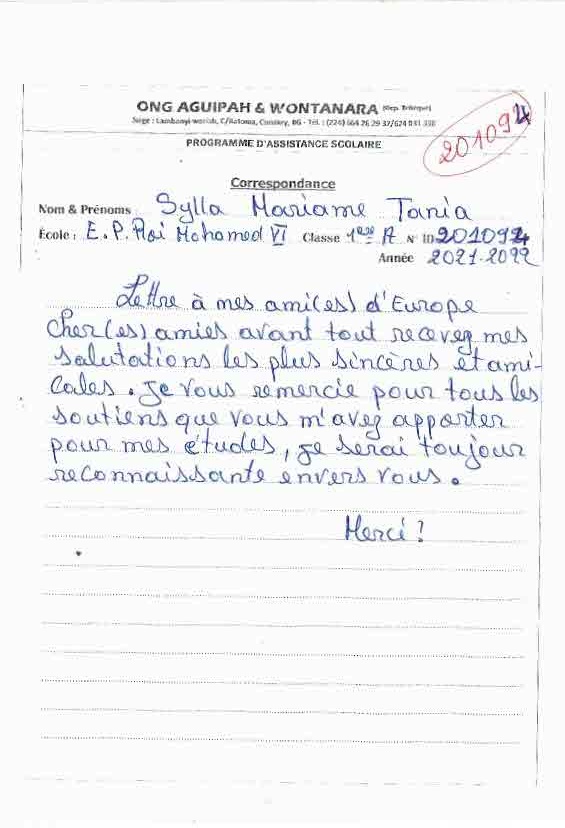 ONG AGUIPAH & WONTANARA (Rép. Guinée)
Siège : Lambanyi-warich, C/Ratoma, Conakry, BG - Tél. : (224) 664 26 29 37/624 031 338
201094
PROGRAMME D'ASSISTANCE SCOLAIRE
Correspondance
Nom & Prénoms Sylla Mariame Tania
École : E.P. Roi Mohamed VI Classe 1ère A N° ID 201094
Année 2021-2022
Lettre à mes ami(es) d'Europe
Cher(es) amies avant tout recevez mes
salutations les plus sincères et ami-
cales. Je vous remercie pour tous les
soutiens que vous m'avez apporter
pour mes études, je serai toujour
reconnaissante envers vous.
Merci !